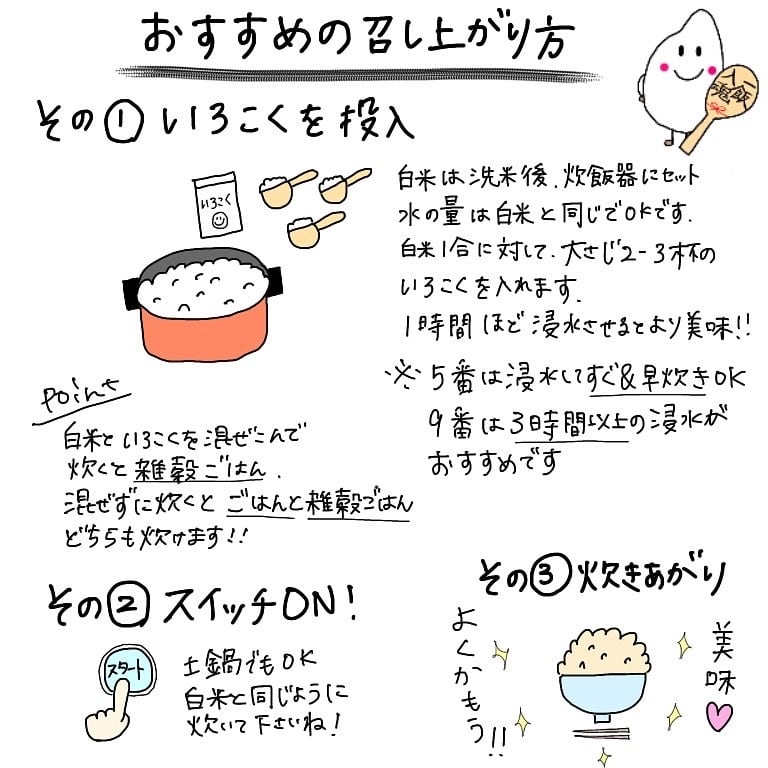 おすすめの召し上がり方
一飯入魂
その①いろこくを投入
いろこく
白米は洗米後、炊飯器にセット
水の量は白米と同じでOKです.
白米1合に対して、大さじ2-3杯の
いろこくを入れます.
1時間ほど浸水させるとより美味!!
※5番は浸水してすぐ&早炊きOK
9番は3時間以上の浸水が
おすすめです
point
白米といろこくを混ぜこんで
炊くと雑穀ごはん.
混ぜずに炊くとごはんと雑穀ごはん
どちらも炊けます!!
その②スイッチON!
スタート
土鍋でもOK
白米と同じように
炊いて下さいね!
その③炊きあがり
美味
よくかもう!!